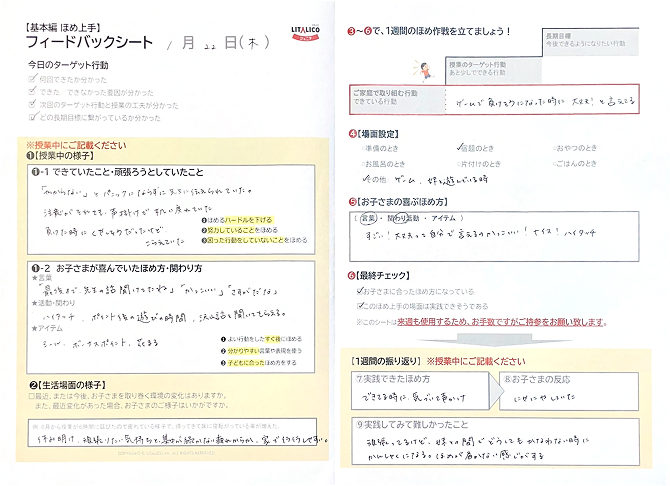 【基本編 ほめ上手】
フィードバックシート
1月22日(木)
LITALICO
ジュニア
今日のターゲット行動
何回できたか分かった
できた、できなかった要因が分かった
次回のターゲット行動と授業の工夫が分かった
どの長期目標に繋がっているか分かった
※授業中にご記載ください
❶【授業中の様子】
❶-1 できていたこと・頑張ろうとしていたこと
「わからない」とパニックにならずに先生に伝えられていた。
注意がそれても、声掛けですぐに戻れていた
負けた時にくやしそうだったけど
こらえていた
❶ほめるハードルを下げる
❷努力していることをほめる
❸困った行動をしていないことをほめる
❶-2 お子さまが喜んでいたほめ方・関わり方
★言葉
「最後まで先生の話聞けてたね」「かっこいい」「さすがだな」
★活動・関わり
ハイタッチ、ポイント後の遊びの時間、沢山話を聞いてもらえる。
★アイテム
シール、ボーナスポイント、花まる
❶よい行動をしたすぐ後にほめる
❷分かりやすい言葉や表現を使う
❸子どもに合ったほめ方をする
❷【生活場面の様子】
□最近、または今後、お子さまを取り巻く環境の変化はありますか。
また、最近変化があった場合、お子さまのご様子はいかがですか。
休み明け、頑張りたい気持ちと、集中が続かない疲れからか、家でイライラしやすい。
❸~❻で、1週間のほめ作戦を立てましょう!
長期目標
今後できるようになりたい行動
授業のターゲット行動
あと少しでできる行動
ご家庭で取り組む行動
できている行動
ゲームで負けそうになった時に大丈夫!と言えてる
❹【場面設定】
○準備のとき
宿題のとき
○おやつのとき
○お風呂のとき
○片付けのとき
○ごはんのとき
その他: ゲーム、妹と遊んでいる時
❺【お子さまの喜ぶほめ方】
( 言葉 ・ 関わり活動 ・ アイテム )
すごい!大丈夫って自分で言えるのかっこいい!ナイス!ハイタッチ
❻【最終チェック】
お子さまに合ったほめ方になっている
このほめ上手の場面は実践できそうである
※このシートは来週も使用するため、お手数ですがご持参をお願い致します。
【1週間の振り返り】※授業中にご記載ください
⑦実践できたほめ方
できてる時に、気づいて声かけ
⑧お子さまの反応
にやにやしていた
⑨実践してみて難しかったこと
頑張ってるけど、妹との間でどうしてもかなわない時に
かんしゃくになる。ほめが届かない感じがする